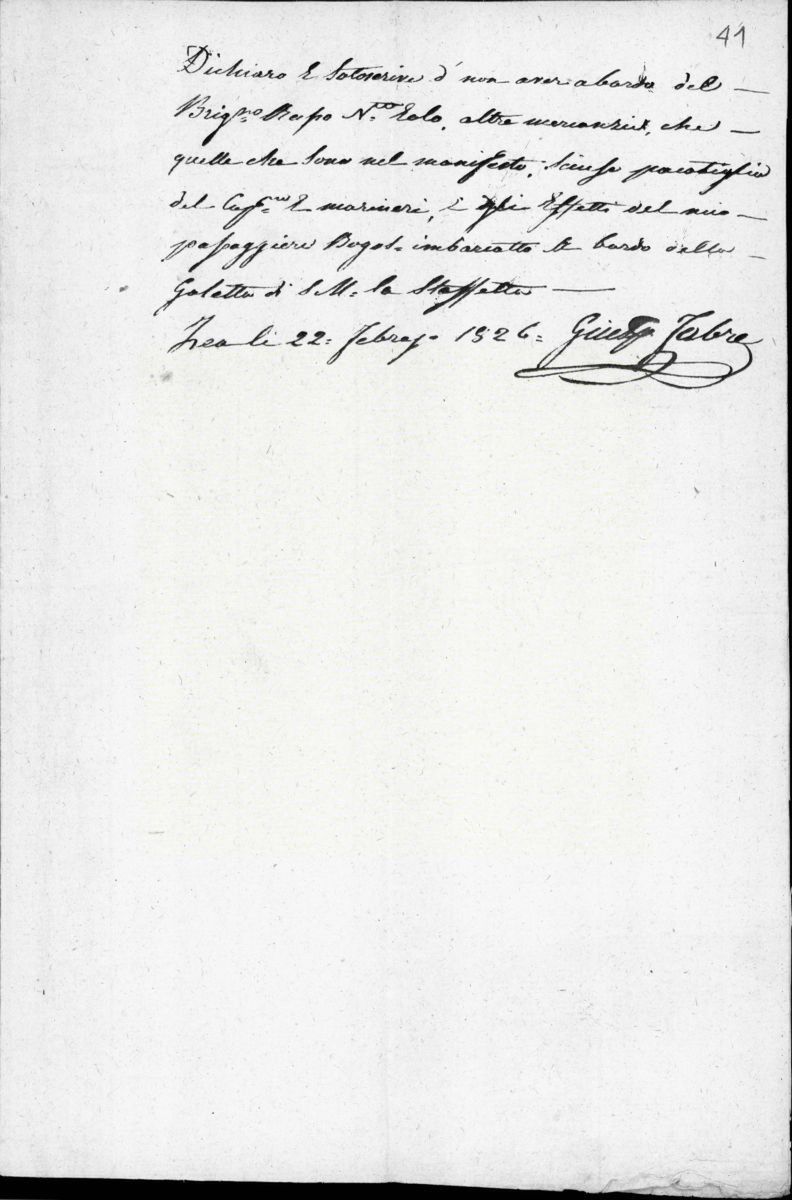 41
Dichiaro E Sotoscrive d' non aver abordo del —
Brig.no Rapo N.to Eolo, altre mercanzie, che —
quelle che Sono nel manifesto; Scinso pacotiglia
del Cap.no E marineri, è gli Effetti del mio —
pasaggiere Bogos = imbarcatto A bordo della —
Goletta di S M = la Staffetta —
Zea li 22 = Febrajo 1826 = Giusep Fabre